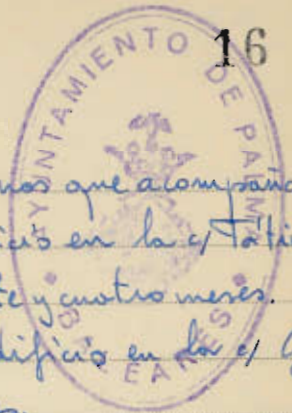 16
AYUNTAMIENTO DE PALMA
BALEARES
nos que acompaña
cio en la c/
te y cuatro meses.
dificio en la c/